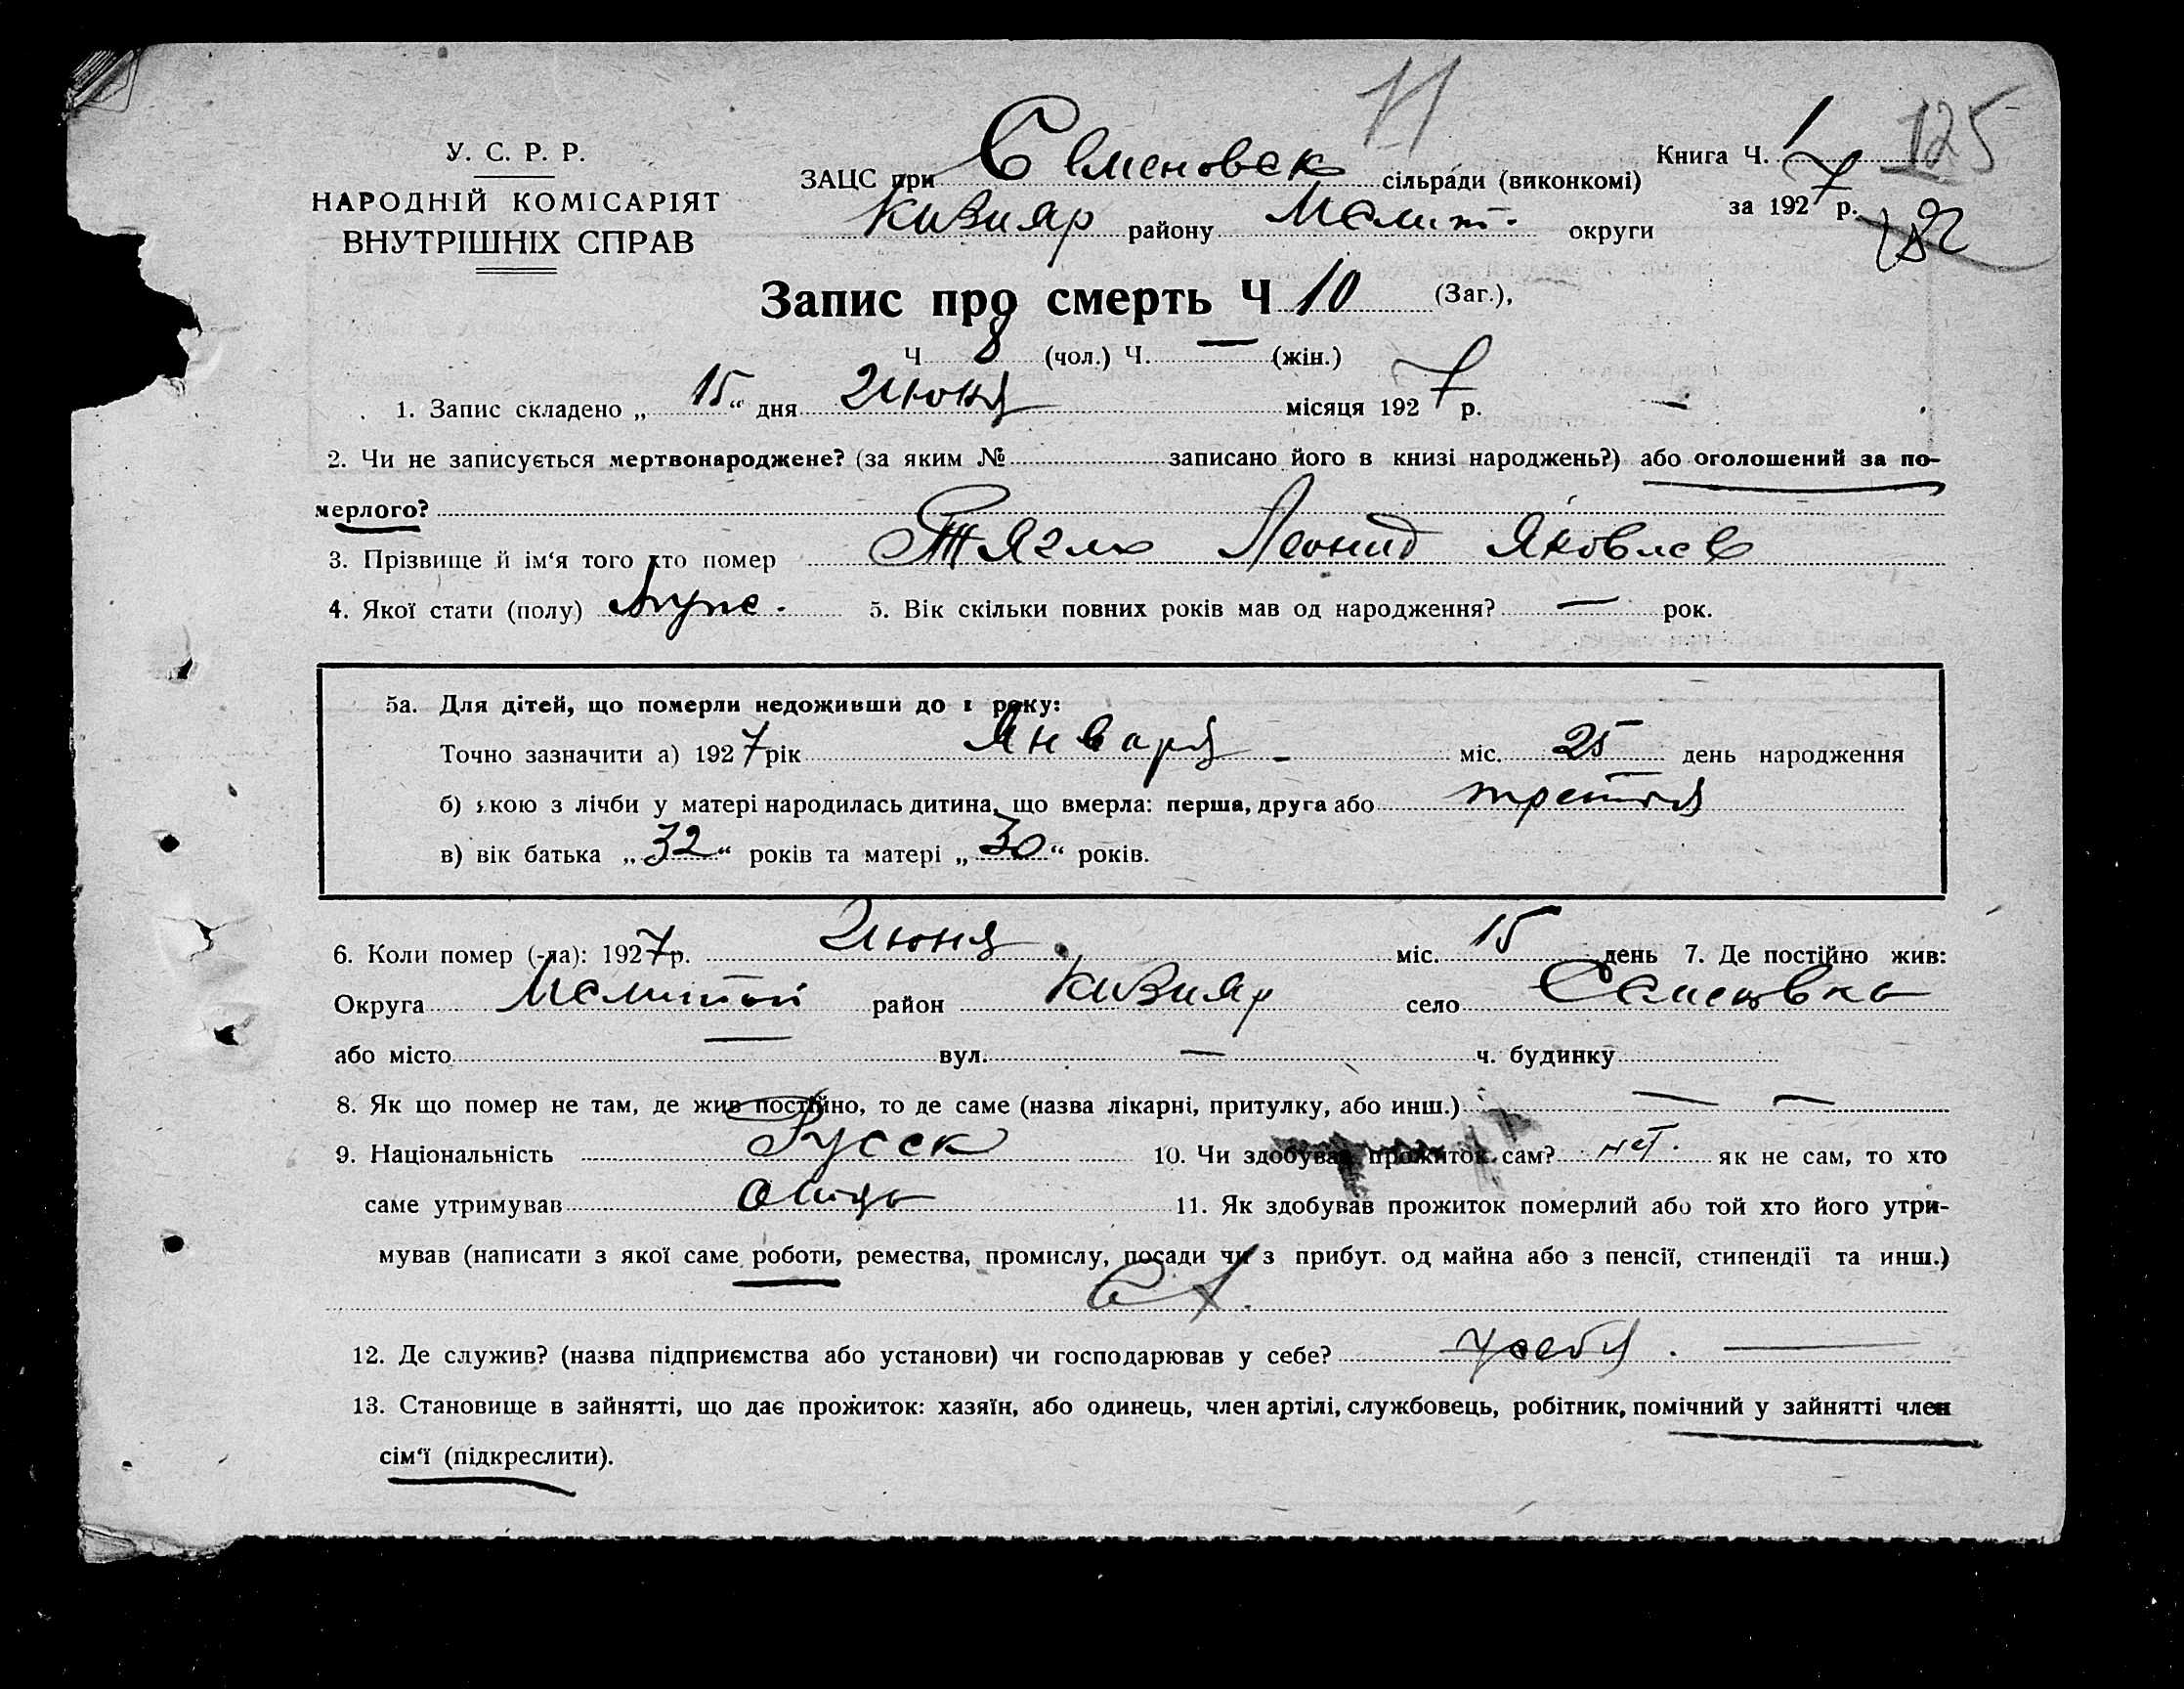 11
У. С. Р. Р.
НАРОДНІЙ КОМІСАРІЯТ
ВНУТРІШНІХ СПРАВ
ЗАЦС при Семеновск сільра́ди (виконкомі)
Кизияр району Мелит. округи
Книга Ч. 1 125
за 1927 р. 182
Запис про смерть Ч 10 (Заг.),
Ч 8 (чол.) Ч. — (жін.)
1. Запис складено „ 15 “ дня Июня місяця 1927 р. —
2. Чи не записується мертвонароджене? (за яким № записано його в книзі народжень?) або оголошений за по-
мерлого?
3. Прізвище й ім‘я того хто помер Тягло Леонид Яковлев
4. Якої стати (полу) Муже. 5. Вік скільки повних років мав од народження? — рок.
5а. Для дітей, що померли недоживши до 1 року:
Точно зазначити а) 1927 рік Января — міс. 25 день народження
б) якою з лічби у матері народилась дитина, що вмерла: перша, друга або третья
в) вік батька „ 32 “ років та матері „ 30 “ років.
6. Коли помер (-ла): 1927 р. Июня міс. 15 день 7. Де постійно жив:
Округа Мелитоп район Кизияр село Семеновка
або місто — вул. — ч. будинку
8. Як що помер не там, де жив постійно, то де саме (назва лікарні, притулку, або инш.) — —
9. Національність Русск 10. Чи здобував прожиток сам? нет. як не сам, то хто
саме утримував отец 11. Як здобував прожиток померлий або той хто його утри-
мував (написати з якої саме роботи, ремества, промислу, посади чи з прибут. од майна або з пенсії, стипендії та инш.)
С Х.
12. Де служив? (назва підприємства або установи) чи господарював у себе? у себя. —
13. Становище в зайнятті, що дає прожиток: хазяїн, або одинець, член артілі, службовець, робітник, помічний у зайнятті член
сім‘ї (підкреслити).